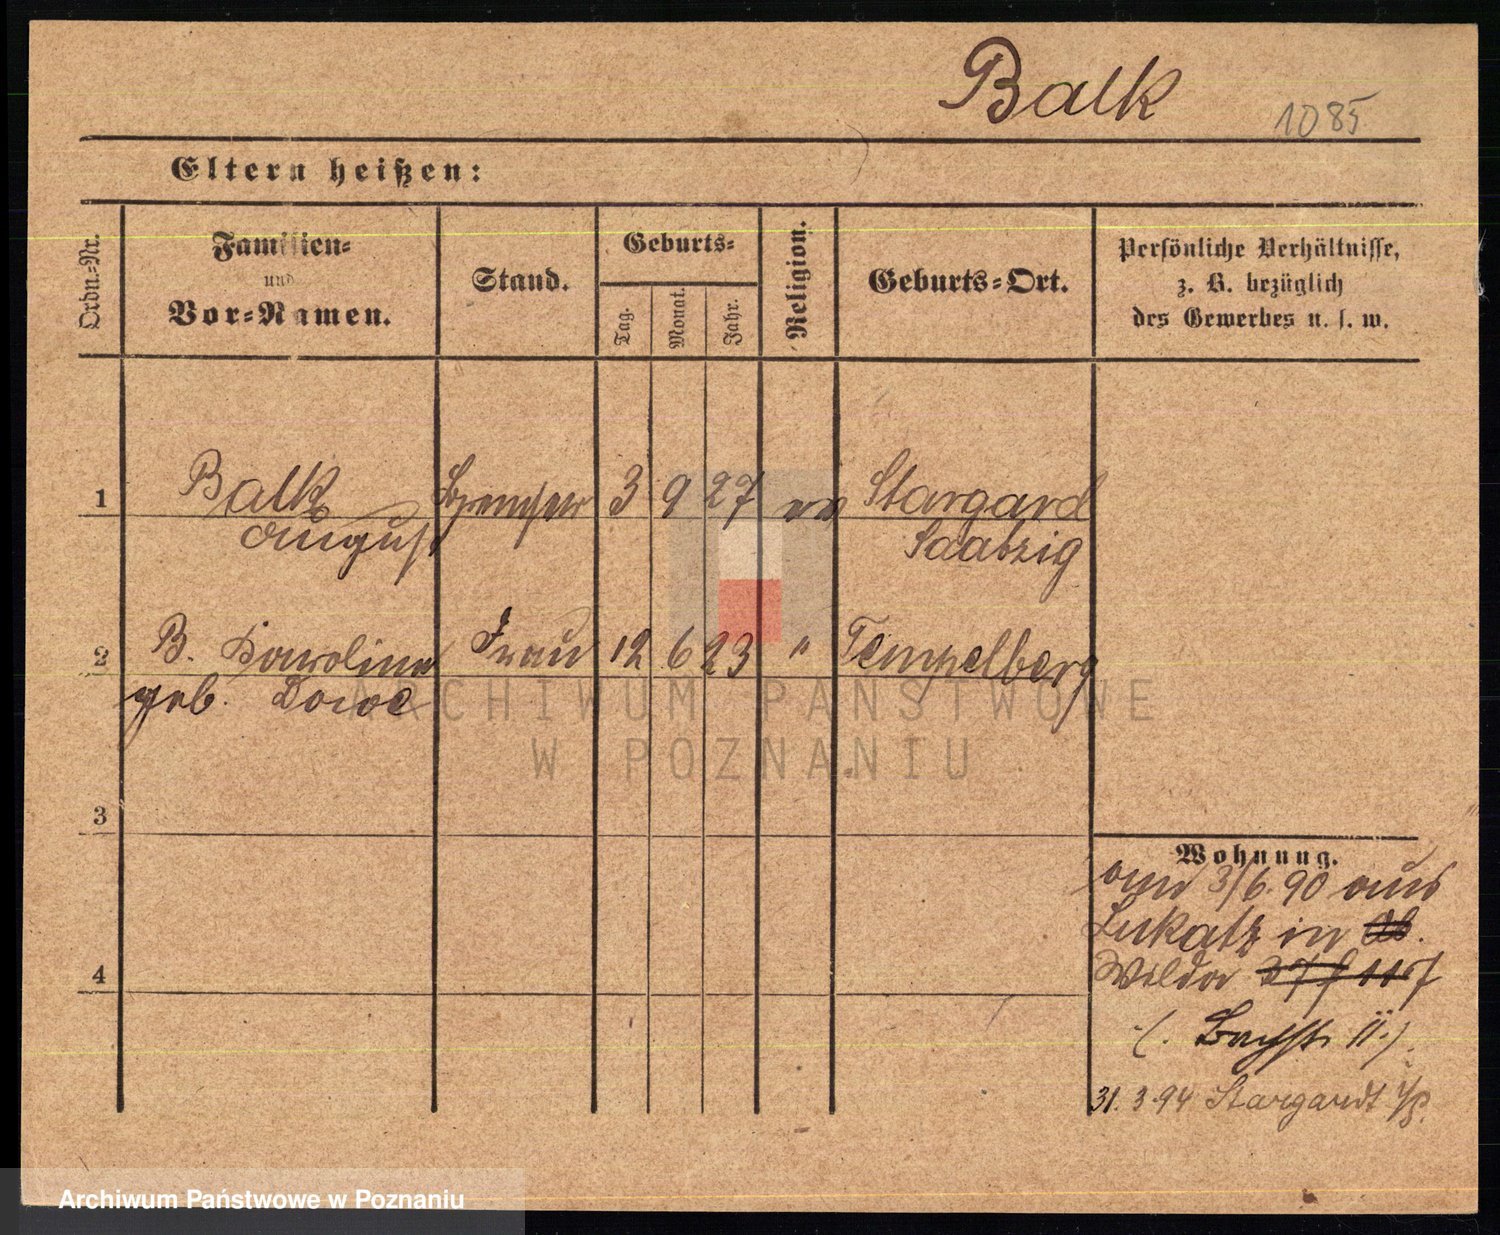 Balk
1085
Eltern heißen:
Ordn.-Nr.
Familien-
und
Vor-Namen.
Stand.
Geburts-
Tag.
Monat.
Jahr.
Religion.
Geburts-Ort.
Persönliche Verhältnisse,
z. B. bezüglich
des Gewerbes u. s. w.
1 Balk 3 9 27 ev Stargard
August Saatzig
2 B. Karoline Frau 12 6 23 " Tempelberg
geb. Dowe
3
Wohnung.
am 3/6.90 aus
Lukatz in
4
Wilda
31. 3.94 Stargardt i/P.
ARCHIWUM PAŃSTWOWE
W POZNANIU
Archiwum Państwowe w Poznaniu